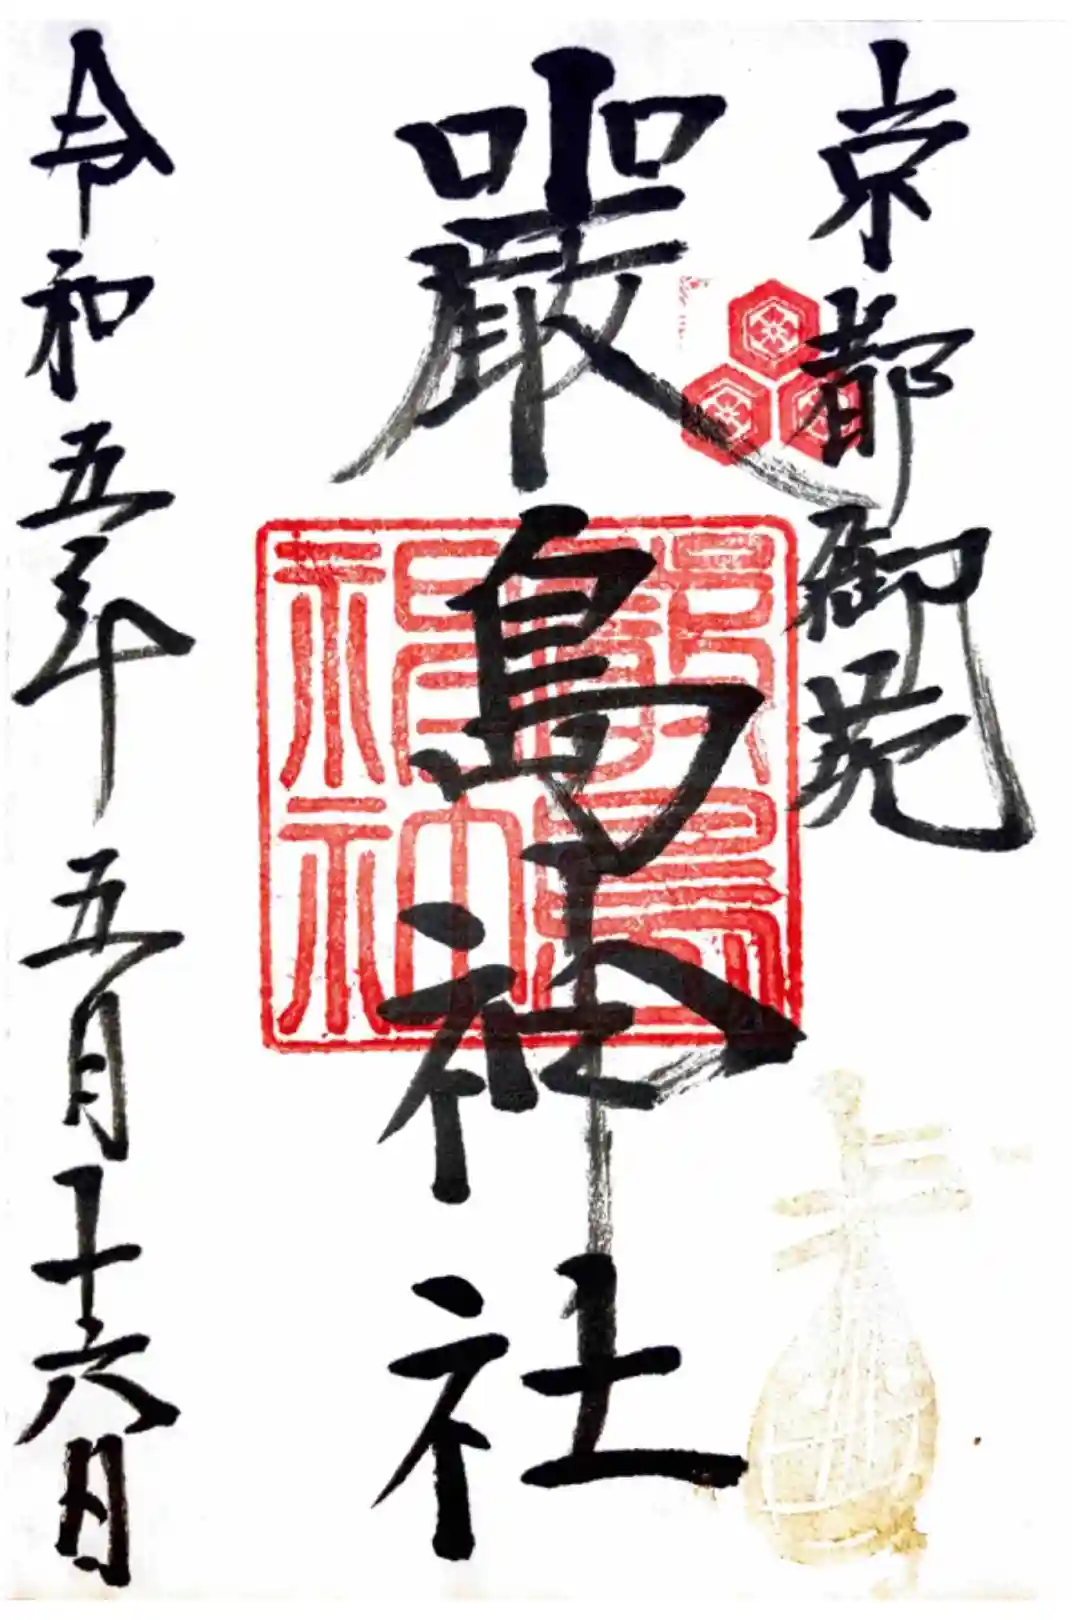 京都御苑
嚴島神社
令和五年 五月十六日